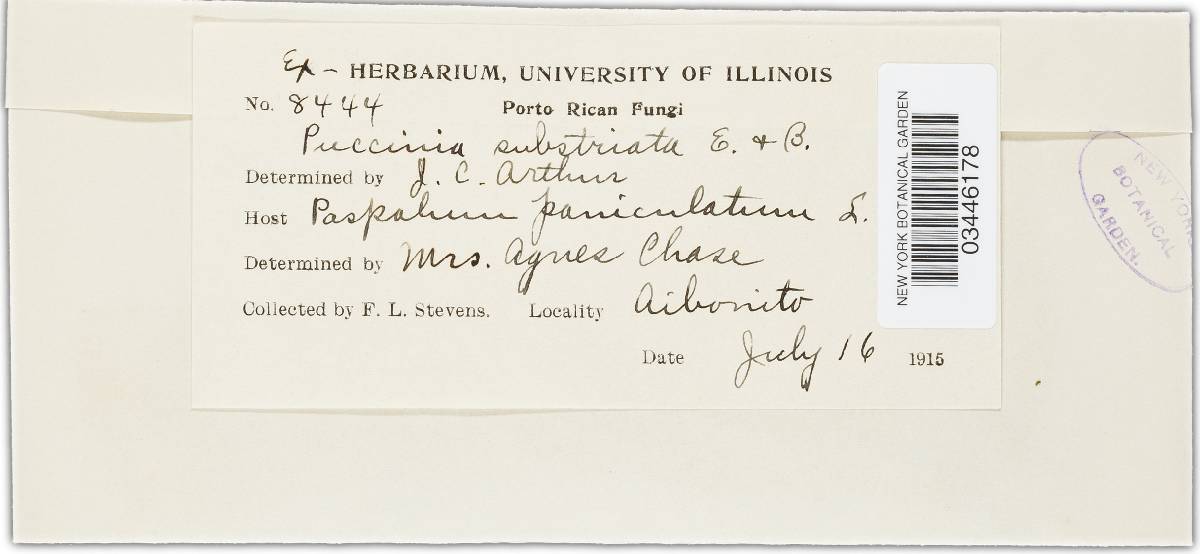 Ex - HERBARIUM, UNIVERSITY OF ILLINOIS
No. 8444 Porto Rican Fungi
Puccinia substriata E. & B.
Determined by J. C. Arthur
Host Paspalum paniculatum L.
Determined by Mrs. Agnes Chase
Collected by F. L. Stevens. Locality Aibonito
Date July 16 1915
NEW YORK BOTANICAL GARDEN
03446178
NEW YORK
BOTANICAL
GARDEN.